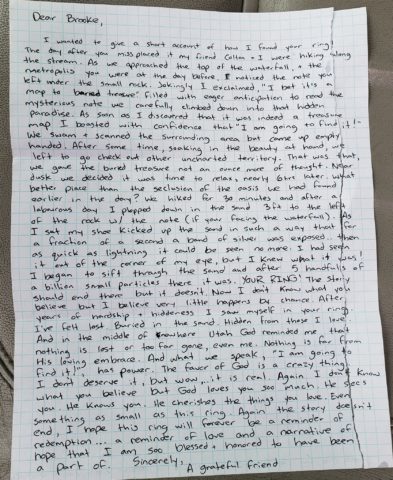 Dear Brooke,
I wanted to give a short account of how I found your ring!
The day after you missplaced it my friend Colton + I were hiking along
the stream. As we approached the top of the waterfall, + the
metropolis you were at the day before, I noticed the note you
left under the small rock. Jokingly I exclaimed, "I bet it's a
map to buried tresure". Filled with eager anticipation to read the
mysterious note we carefully climbed down into that hidden
paradise. As soon as I discovered that it was indeed a treasure
map I boasted with confidence that "I am going to find it!"
We swam + scanned the surrounding area but came up empty
handed. After some time, soaking in the beauty at hand, we
left to go check out other uncharted territory. That was that,
we gave the buried treasure not an ounce more of thought. Near
dusk we decided it was time to relax, nearly 6hrs later. what
better place than the seclusion of the oasis we had found
earlier in the day? We hiked for 30 minutes and after a
labourous day I plopped down in the sand 3ft to the left
of the rock w/ the note (if your facing the waterfall). As
I sat my shoe kicked up the sand in such a way that for
a fraction of a second a band of silver was exposed then
as quick as lightning it could be seen no more. I had seen
it out of the corner of my eye, but I knew what it was!
I began to sift through the sand and after 5 handfulls of
a billion small particles there it was. YOUR RING! The story
should end there but it doesn't. Now I don't know what you
believe but I believe very little happens by chance. After
years of hardship + hiddeness I saw myself in your ring.
I've felt lost. Buried in the sand. Hidden from those I love.
And in the middle of nowhere Utah God reminded me, that
nothing is lost or too far gone, even me. Nothing is far from
His loving embrace. And what we speak, "I am going to
find it!", has power. The favor of God is a crazy thing,
I don't deserve it, but wow, it is real. Again I don't know
what you believe but God loves you soo much. He sees
you. He knows you. He cherishes the things you love. Even
something as small as this ring. Again the story doesn't
end, I hope this ring will forever be a reminder of
redemption... a reminder of love and a narrative of
hope that I am soo blessed + honored to have been
a part of. Sincerely,
A grateful friend